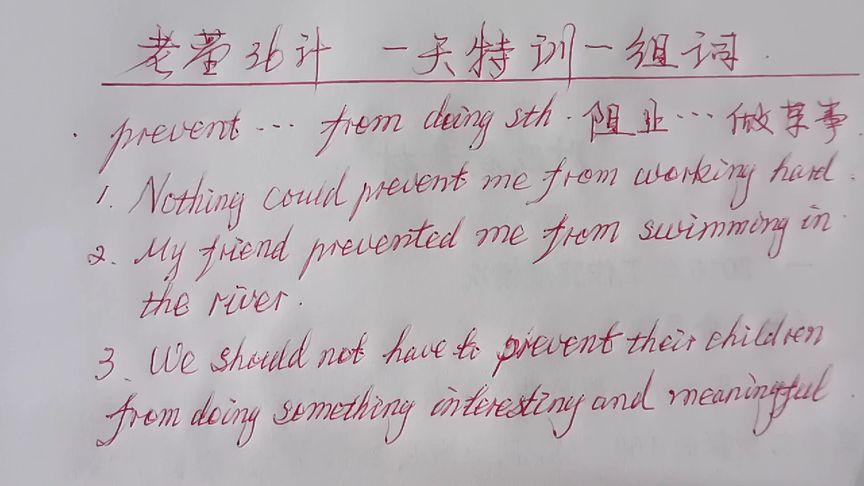 老董36计 一天特训一组词.
· prevent … from doing sth. 阻止…做某事
1. Nothing could prevent me from working hard.
2. My friend prevented me from swimming in
the river.
3. We should not have to prevent their children
from doing something interesting and meaningful.